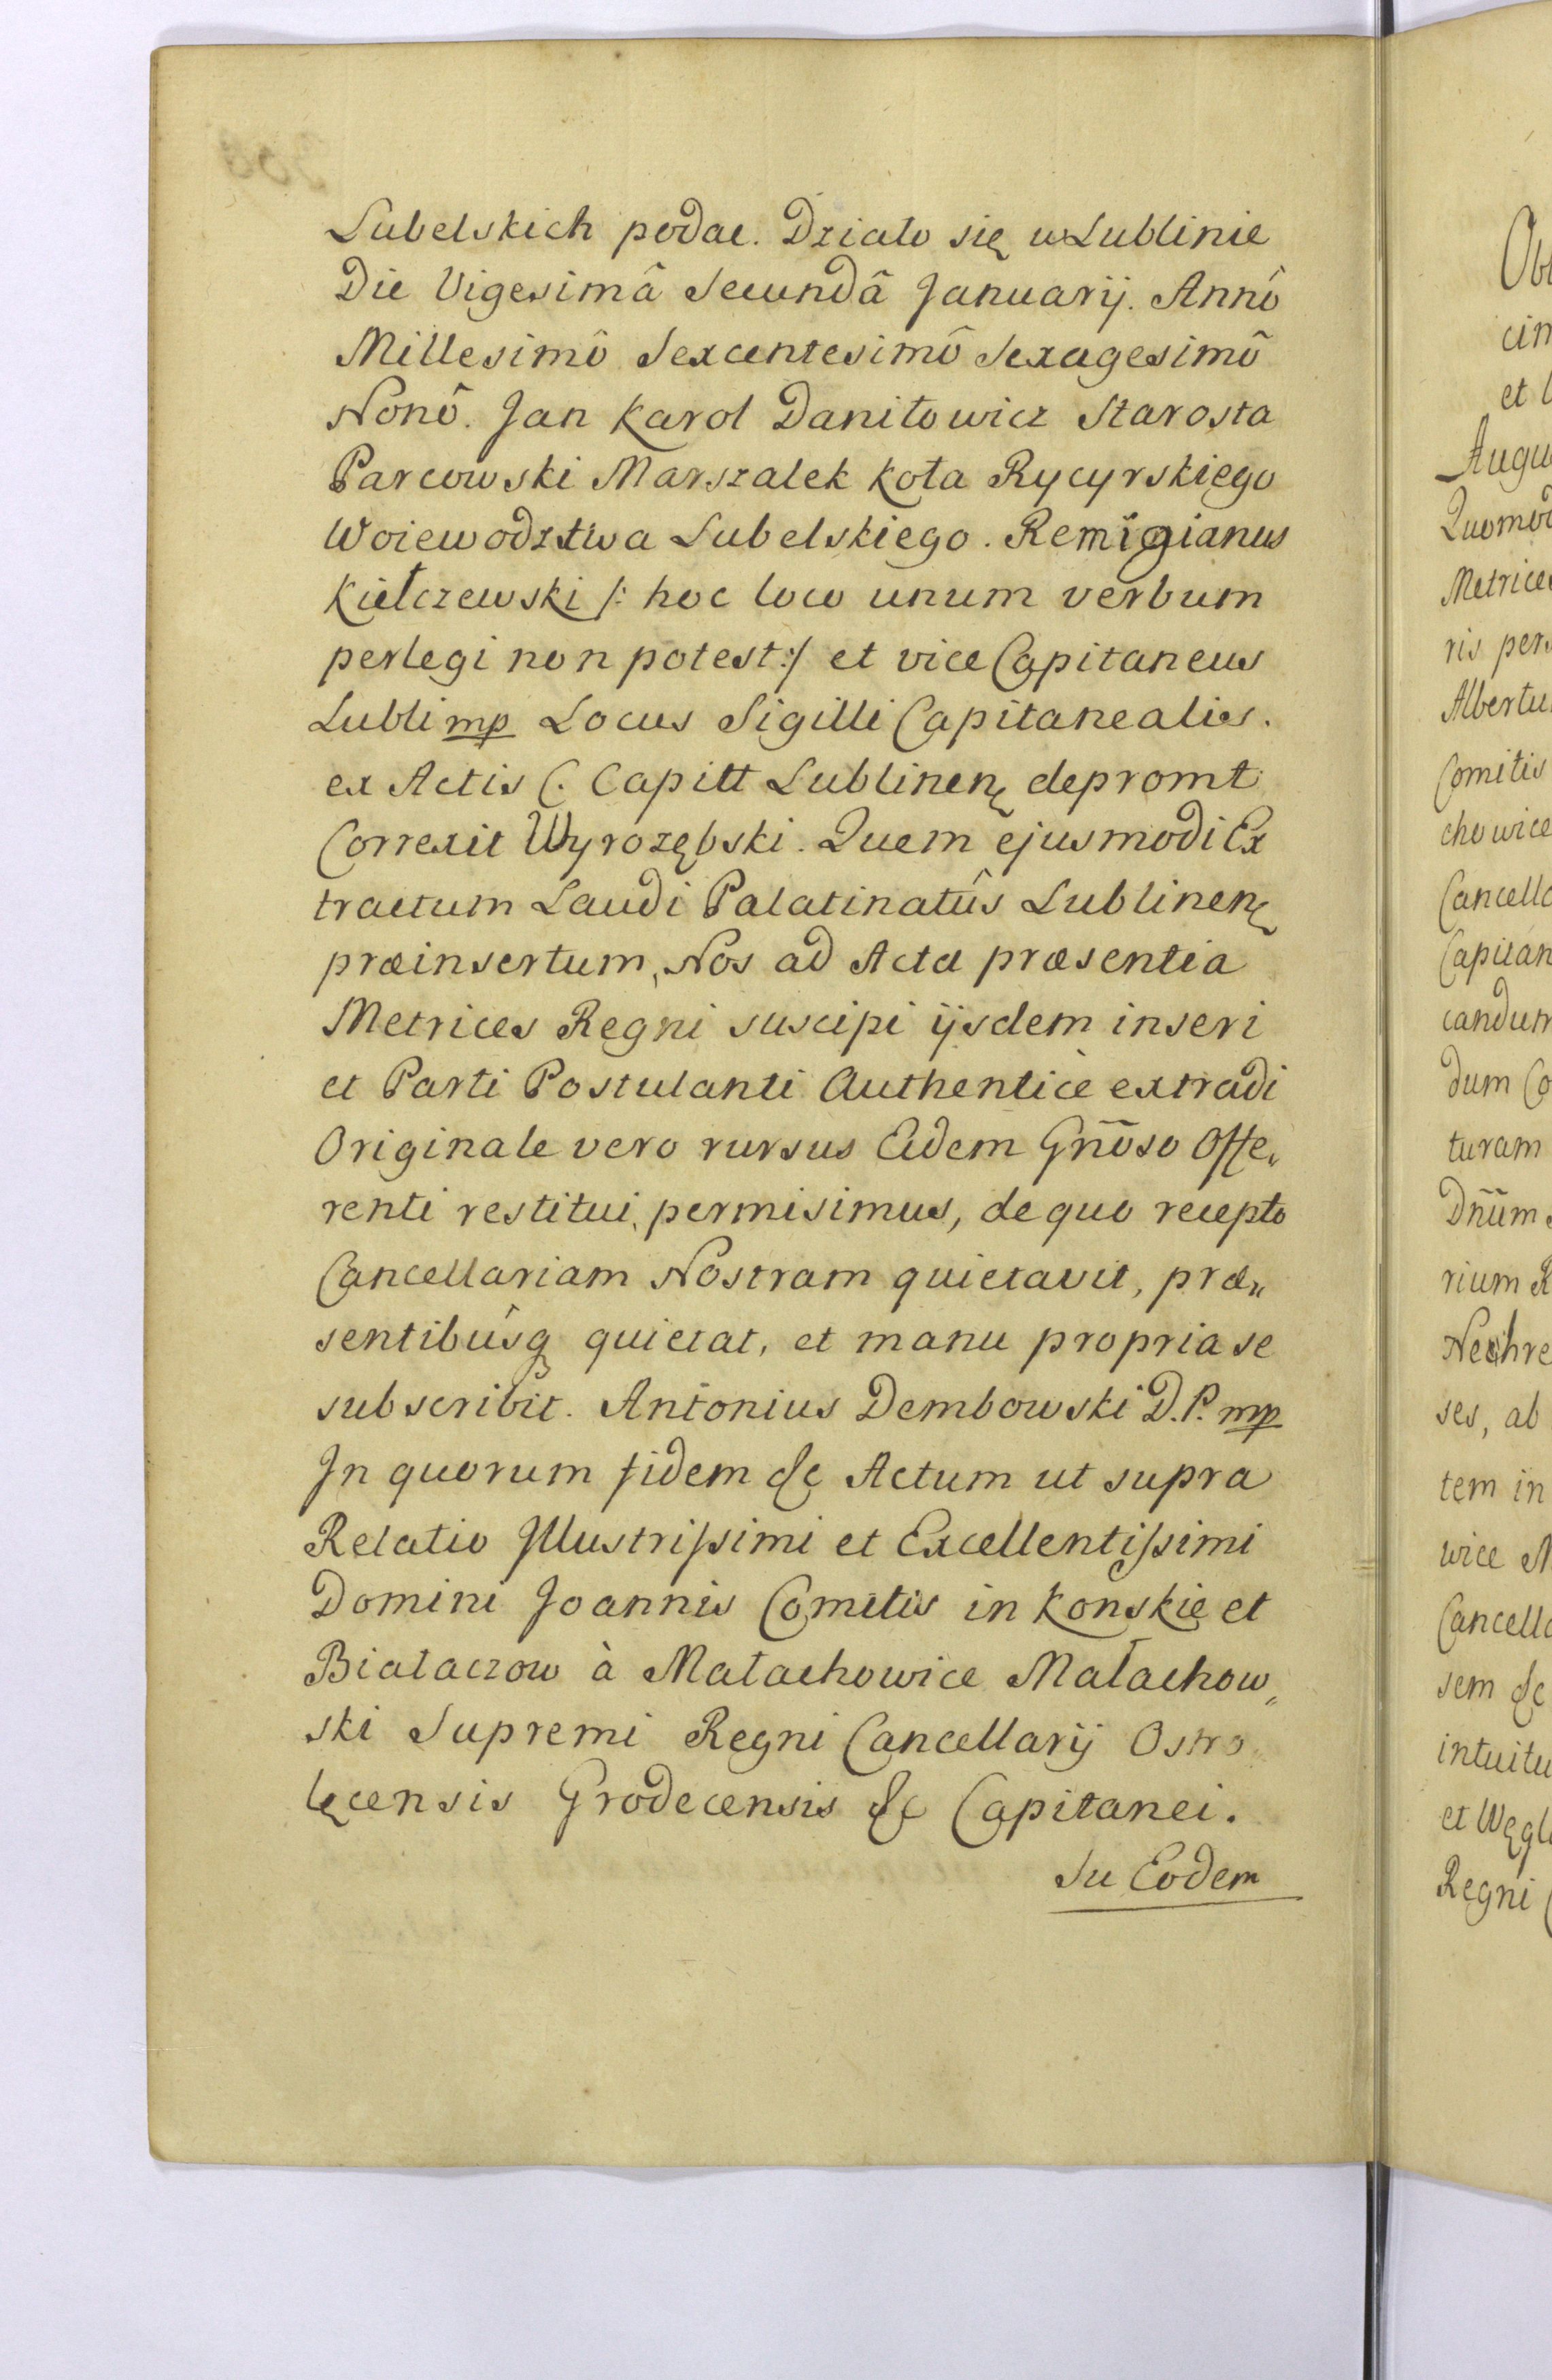 Lubelskich podac. Działo się w Lublinie
Die Vigesimâ Secundâ Januarij. Annô
Millesimô Sexcentesimô Sexagesimô
Nonô. Jan Karol Daniłowicz Starosta
Parcowski Marszalek Koła Rycyrskiego
Woiewodztwa Lubelskiego. Remigianus
Kiełczewski /: hoc loco unum verbum
perlegi non potest :/ et vice Capitaneus
Lubli mp Locus Sigilli Capitanealis.
ex Actis C. Capitt Lublinen depromt
Correxit Wyrozębski. Quem ejusmodi Ex
tractum Laudi Palatinatûs Lublinen
præinsertum, Nos ad Acta præsentia
Metrices Regni suscipi ijsdem inseri
et Parti Postulanti Authenticè extradi
Originale vero rursus Eidem Gnōso Offe„
renti restitui, permisimus, de quo recepto
Cancellariam Nostram quietavit, præ„
sentibûsq quietat, et manu propria se
subscribit. Antonius Dembowski D.P. mp
In quorum fidem &c Actum ut supra
Relatio Illustrissimi et Excellentissimi
Domini Joannis Comitis in Konskie et
Białaczow à Małachowice Małachow„
ski Supremi Regni Cancellarij Ostro
łęcensis Grodecensis &c Capitanei.
Su Eodem
Augu
Quomod
Metrices
ris pers
Albertu
Comitis
chowice
Cancella
Capitan
candum
dum Co
turam
Dnūm
rium R
ses, ab
tem in
wice M
Cancella
sem &c
intuitu
et Węgl
Regni